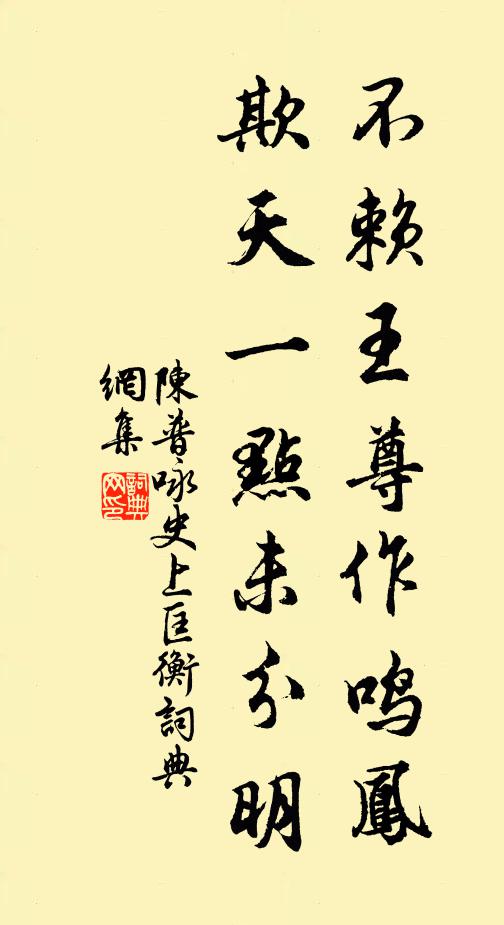 不賴王尊作鳴鳳
欺天一點未分明
陳普咏史上匡衡詞典
網集
詞典
网印